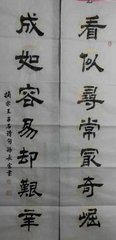 看似尋常冣奇崛
成如容易却艱辛
摘宋王安石詩句